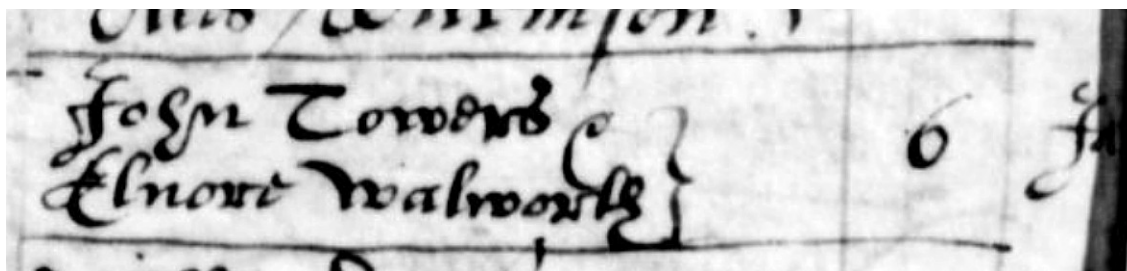 John Towers 6
Elnore Walworth